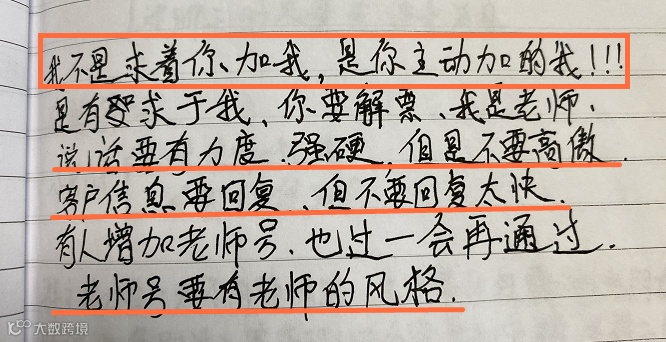 我不是求着你、加我，是你主动加的我！！！
是有求于我、你要解票、我是老师、
说话要有力度、强硬、但是不要高傲、
客户信息要回复、但不要回复太快、
有人增加老师号、也过一会再通过、
老师号要有老师的风格、
大数跨境